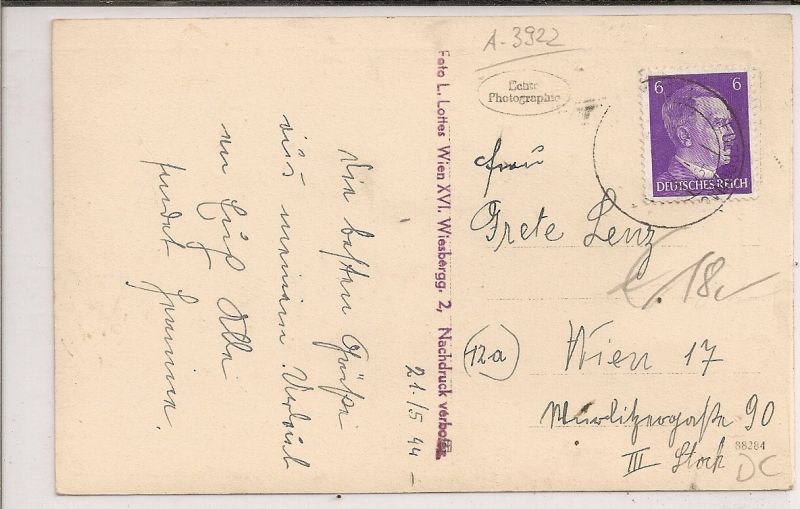 A-3922
Echte
Photographie
6 6
DEUTSCHES REICH
Foto L. Lottes Wien XVI. Wiesbergg. 2, Nachdruck verboten
Frau
Grete Lenz
18
(12a) Wien 17
Wurlitzergaße 90
III Stock
88284
DC
21./5 44 –
Die besten Grüße
aus meinem Urlaub